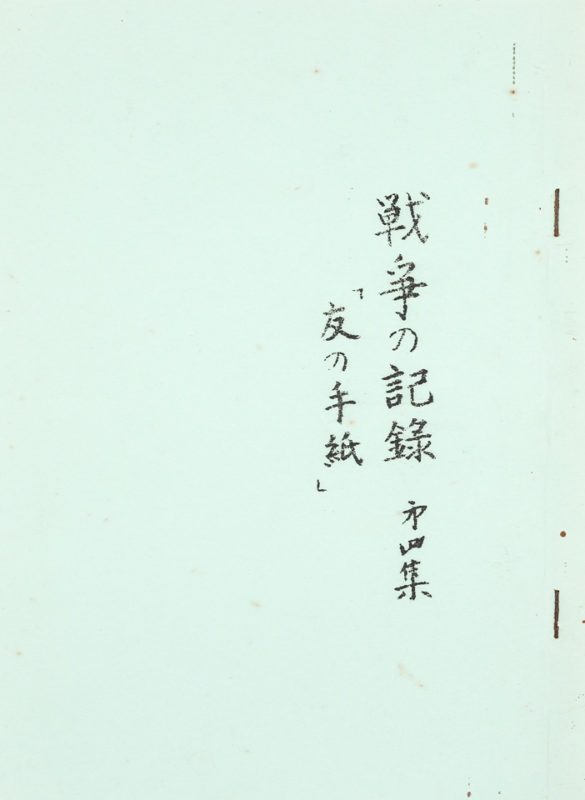 戦争の記録 㐧四集
「友の手紙」